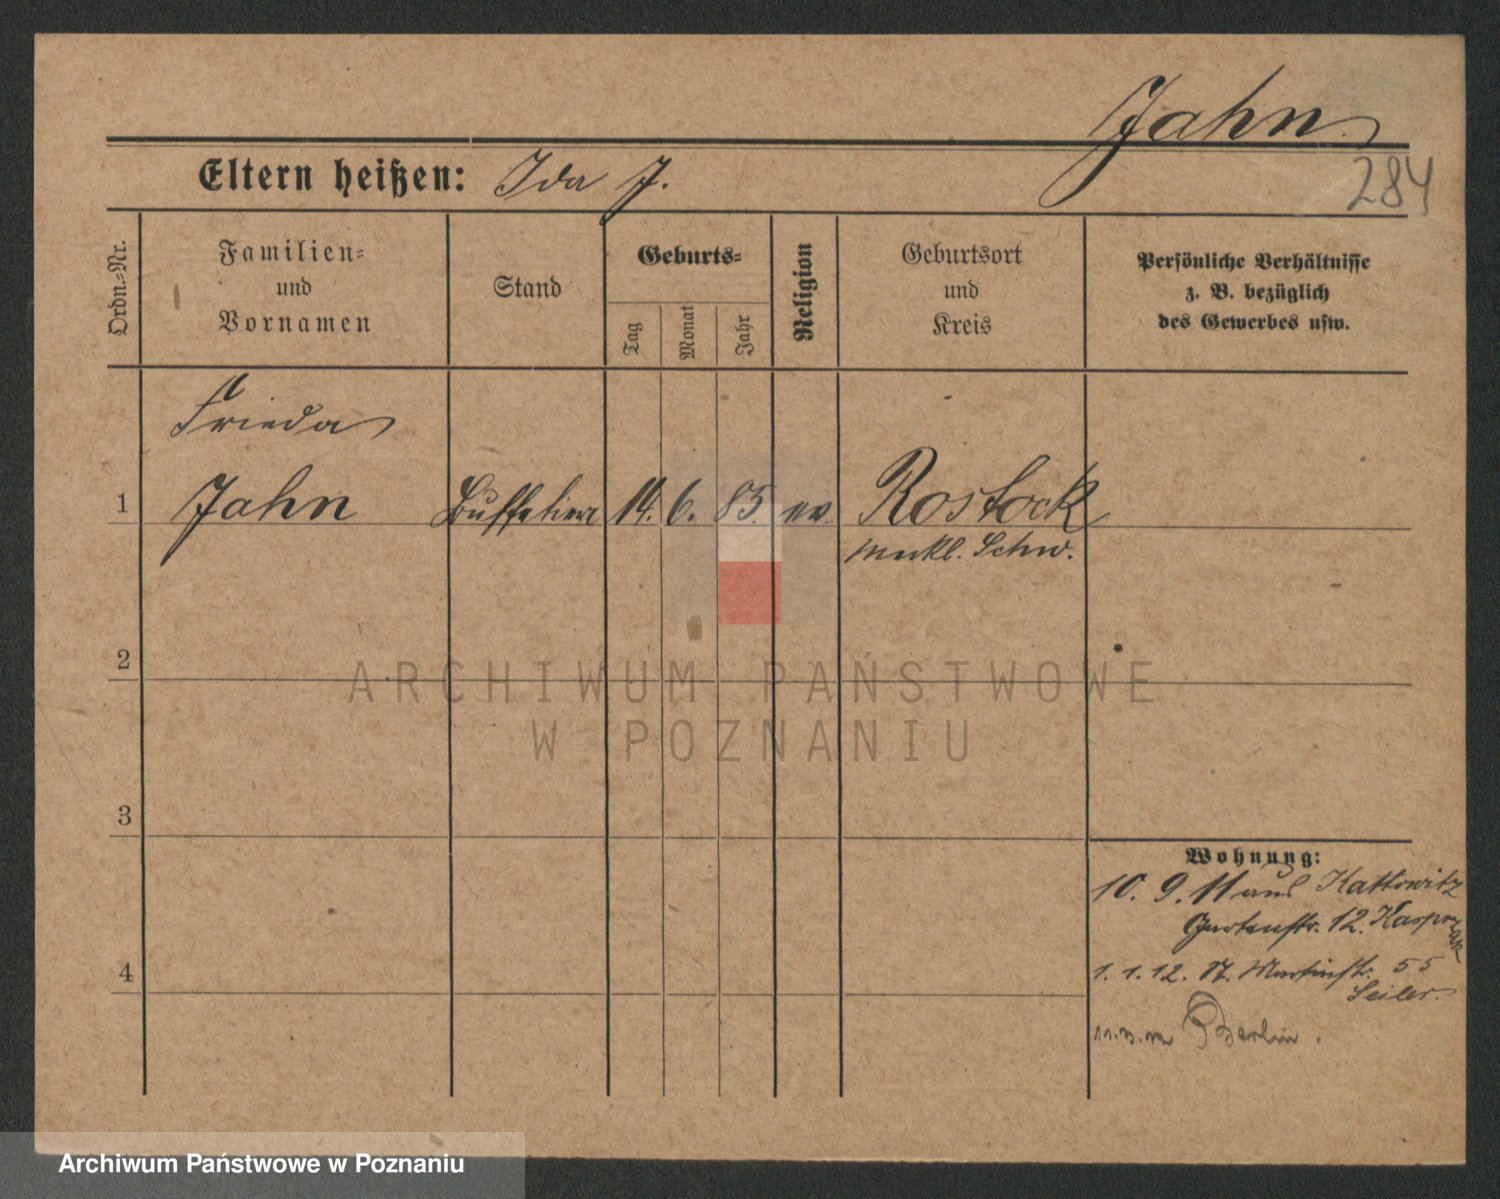 Jahn
284
Eltern heißen: Ida J.
Ordn.-Nr.
Familien-
und
Vornamen
Stand
Geburts-
Tag
Monat
Jahr
Religion
Geburtsort
und
Kreis
Persönliche Verhältnisse
z. B. bezüglich
des Gewerbes usw.
Frieda
1 Jahn Buffetiere 14. 6. 85. ev. Rostock
Meckl. Schw.
2
3
4
Wohnung:
10. 9. 11 aus Kattowitz
Gartenstr. 12. Kasprzak
1. 1. 12. St. Martinstr. 55
Seiler.
Berlin.
ARCHIWUM PAŃSTWOWE
W POZNANIU
Archiwum Państwowe w Poznaniu